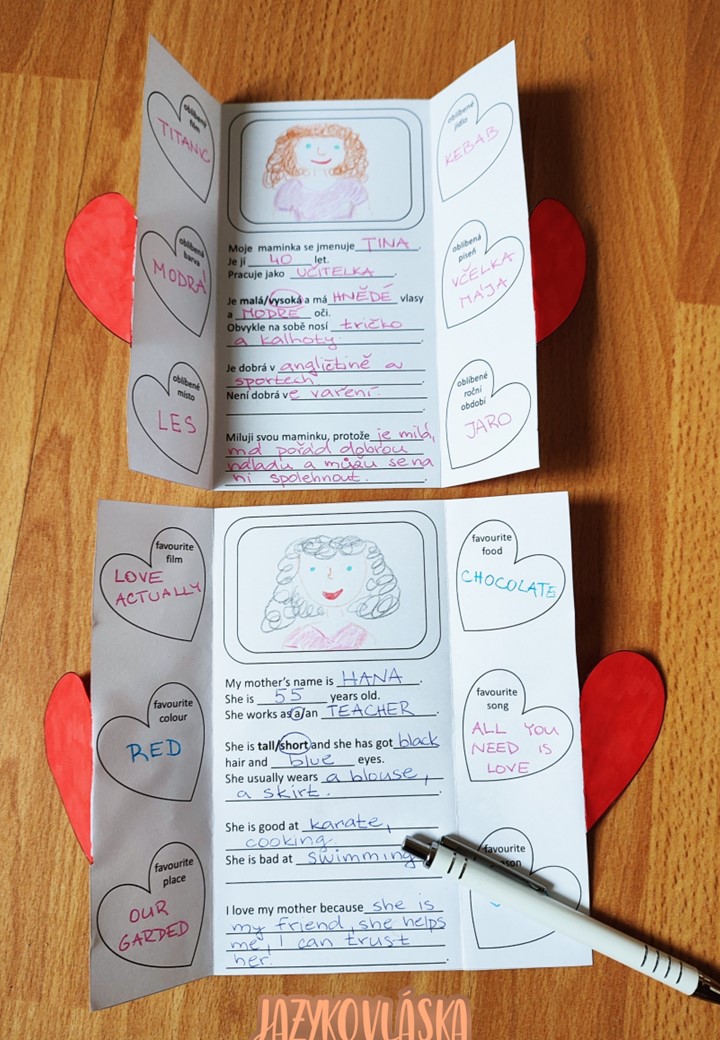 oblíbený
film
TITANIC
oblíbená
barva
MODRÁ
oblíbené
místo
LES
Moje maminka se jmenuje TINA.
Je jí 40 let.
Pracuje jako UČITELKA.
Je malá/vysoká a má HNĚDÉ vlasy
a MODRÉ oči.
Obvykle na sobě nosí tričko
a kalhoty.
Je dobrá v angličtině a
sportech.
Není dobrá ve vaření.
Miluji svou maminku, protože je milá,
má pořád dobrou
náladu a můžu se na
ni spolehnout.
oblíbené
jídlo
KEBAB
oblíbená
píseň
VČELKA
MÁJA
oblíbené
roční
období
JARO
favourite
film
LOVE
ACTUALLY
favourite
colour
RED
favourite
place
OUR
GARDED
My mother's name is HANA.
She is 55 years old.
She works as a/an TEACHER.
She is tall/short and she has got black
hair and blue eyes.
She usually wears a blouse,
a skirt.
She is good at karate,
cooking
She is bad at swimming
I love my mother because she is
my friend, she helps
me, I can trust
her.
favourite
food
CHOCOLATE
favourite
song
ALL YOU
NEED IS
LOVE
favourite
JAZYKOVLÁSKA